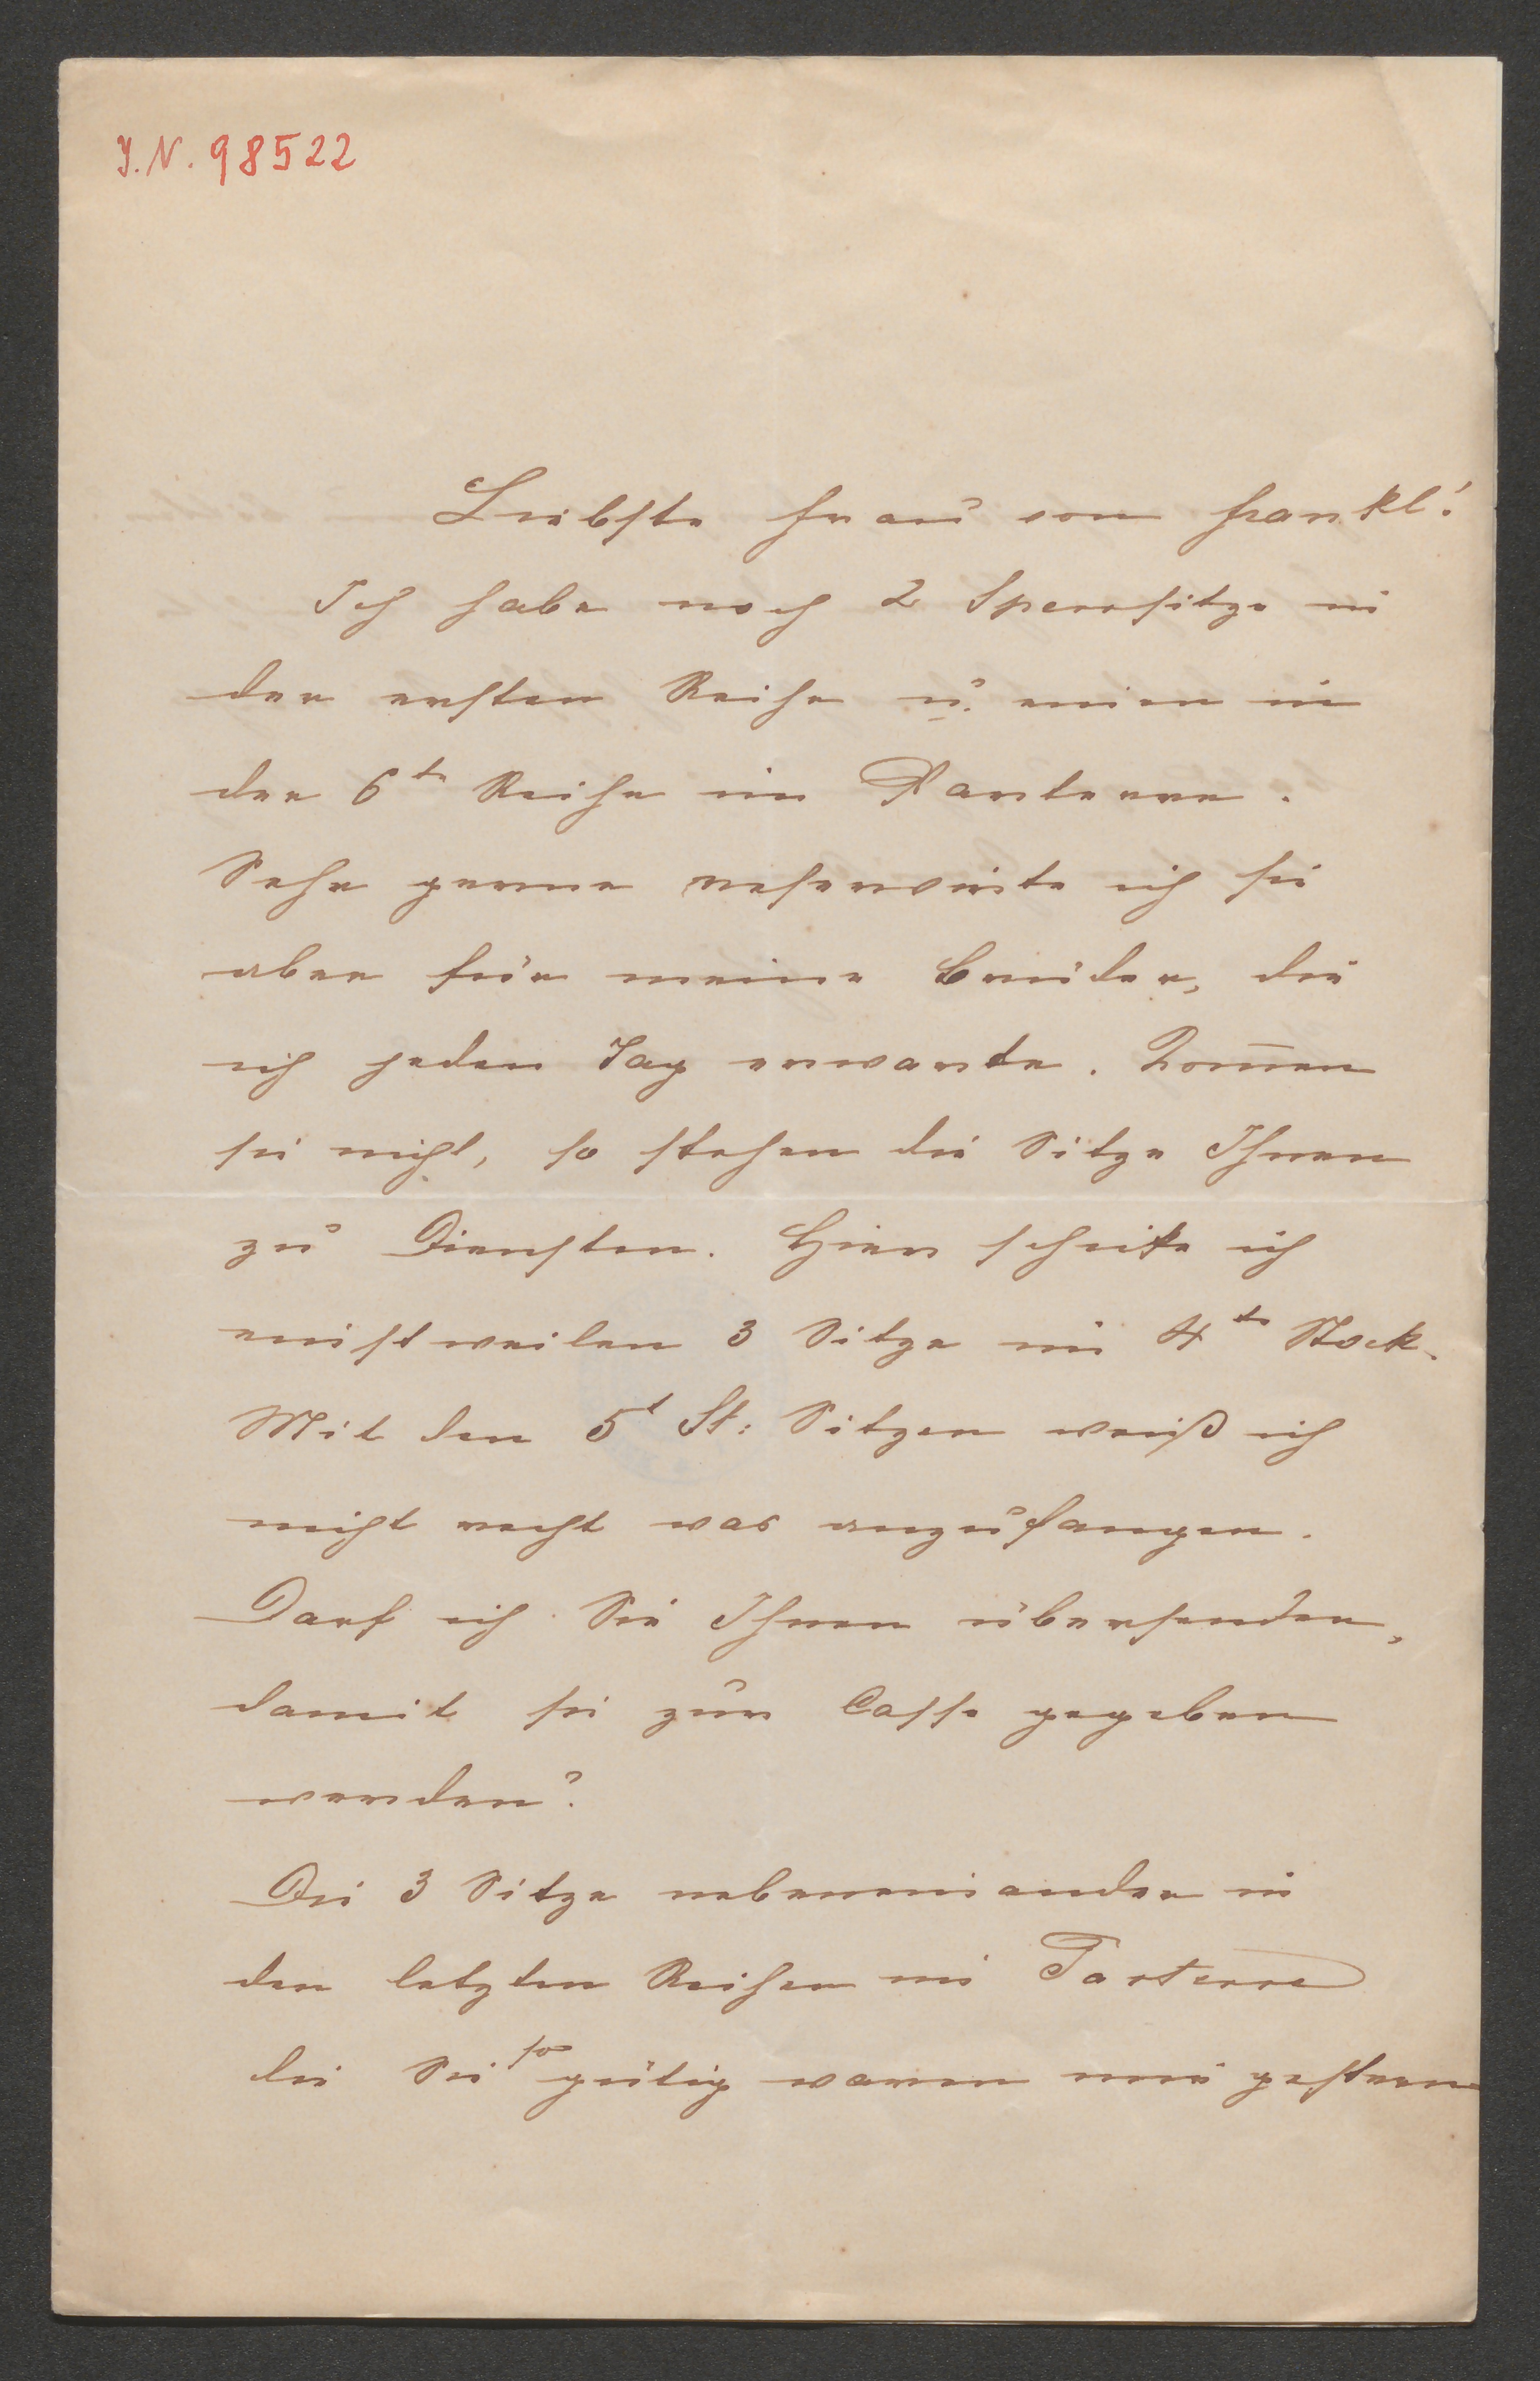 J.N. 98522
Liebste Frau von Frankl!
Ich habe noch 2 Sperrsitze in
der ersten Reihe u. einen in
der 6te Reihe im Parterre.
Sehr gerne reservirte ich sie
aber für meine Brüder, die
ich jeden Tag erwarte. Kom̅en
sie nicht, so stehen die Sitze Ihnen
zu Diensten. Hier schicke ich
einstweilen 3 Sitze im 4te Stock.
Mit den 5t St: Sitzen weiß ich
nicht recht was anzufangen.
Darf ich Sie Ihnen übersenden,
damit sie zur Casse gegeben
werden?
Die 3 Sitze nebeneinander in
den letzten Reihen im Parterre
die Sie so gütig waren mir gestern